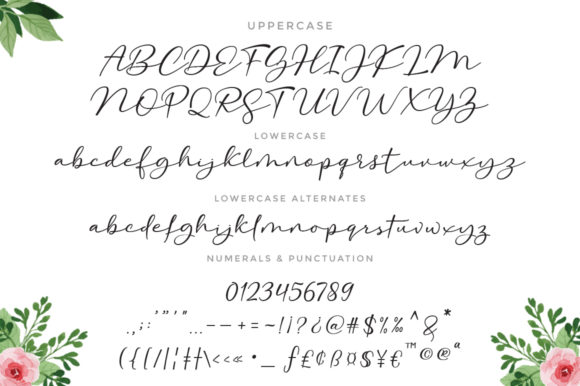 UPPERCASE
ABCDEFGHIJKLM
NOPQRSTUVWXYZ
LOWERCASE
abcdefghijklmnopqrstuvwxyz
LOWERCASE ALTERNATES
abcdefghijklmnopqrstuvwxyz
NUMERALS & PUNCTUATION
0123456789
.,;:'"'"...–—+=~!¡?¿@#$%‰^&*
({[/|¦‡†\<<«•_ƒ£¢ßø§¥€™©®ª